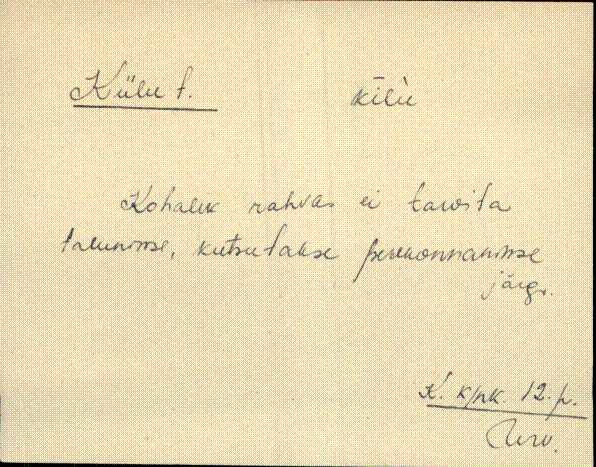 Külu t. kīlu̬
Kohalik rahvas ei tarvita
talunime, kutsutakse perekonnanime
järg.
K. k/nk. 12. p.
Urv.